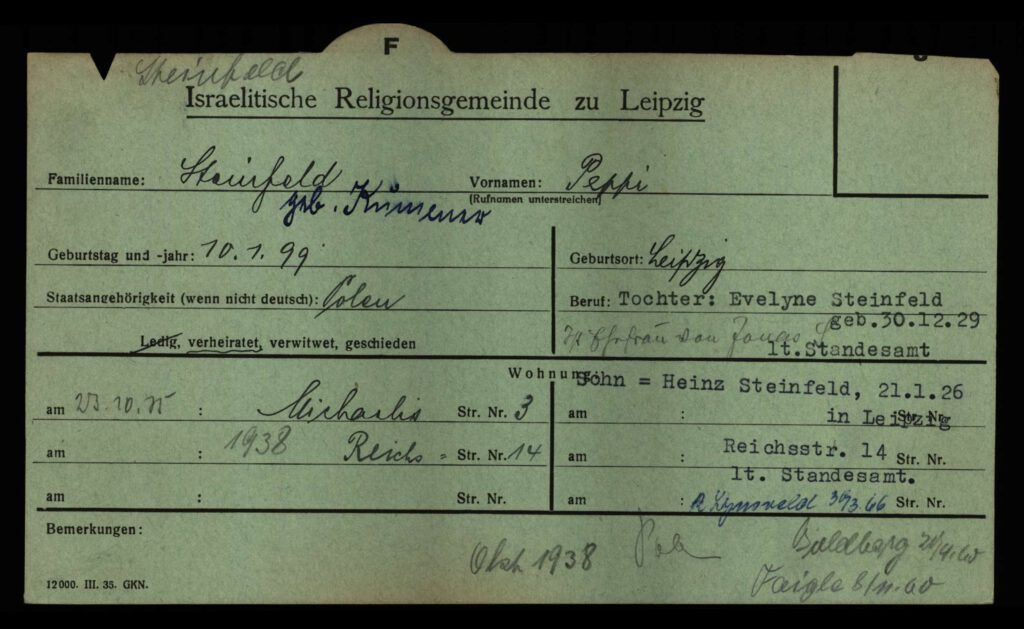 F
Steinfeld
Israelitische Religionsgemeinde zu Leipzig
Familienname: Steinfeld Vornamen: Peppi
(Rufnamen unterstreichen)
geb.
Geburtstag und -jahr: 10.1.99 Geburtsort: Leipzig
Staatsangehörigkeit (wenn nicht deutsch): Polen Beruf: Tochter: Evelyne Steinfeld
geb.30.12.29
Ist Ehefrau von Jonas S
Ledig, verheiratet, verwitwet, geschieden lt.Standesamt
Wohnung:
Sohn = Heinz Steinfeld, 21.1.26
am 23.10.35 : Michaelis Str. Nr. 3 am : in Leipzig Str. Nr.
am : 1938 Reichs = Str. Nr. 14 am : Reichsstr. 14 Str. Nr.
lt. Standesamt.
am : Str. Nr. am : 30/3.66 Str. Nr.
Bemerkungen:
Okt 1938 Goldberg
8/11.60
12000. III. 35. GKN.